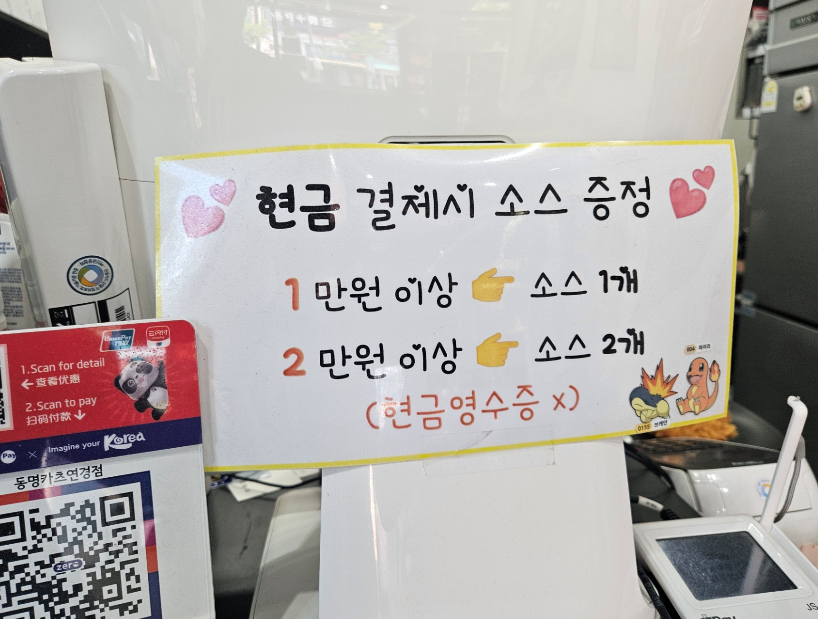 현금 결제시 소스 증정
1만원 이상 소스 1개
2만원 이상 소스 2개
(현금영수증 x)
004 파이리
0155 브케인
UnionPay
云闪付
1.Scan for detail
←查看优惠
2.Scan to pay
扫码付款↓
Pay × Imagine your Korea
동명카츠연경점
zero
Pay
JS